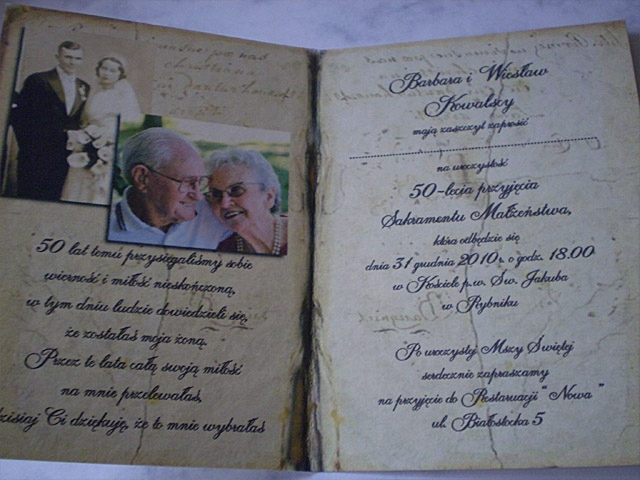 50 lat temu przysięgaliśmy sobie
wierność i miłość nieskończoną,
w tym dniu ludzie dowiedzieli się,
że zostałaś moja żoną.
Przez te lata całą swoją miłość
na mnie przelewałaś,
dzisiaj Ci dziękuję, że to mnie wybrałaś
Barbara i Wiesław
Kowalscy
mają zaszczyt zaprosić
na uroczystość
50-lecia przyjęcia
Sakramentu Małżeństwa,
która odbędzie się
dnia 31 grudnia 2010r. o godz. 18.00
w Kościele p.w. Św. Jakuba
w Rybniku
Po uroczystej Mszy Świętej
serdecznie zapraszamy
na przyjęcie do Restauracji " Nowa "
ul. Białostocka 5